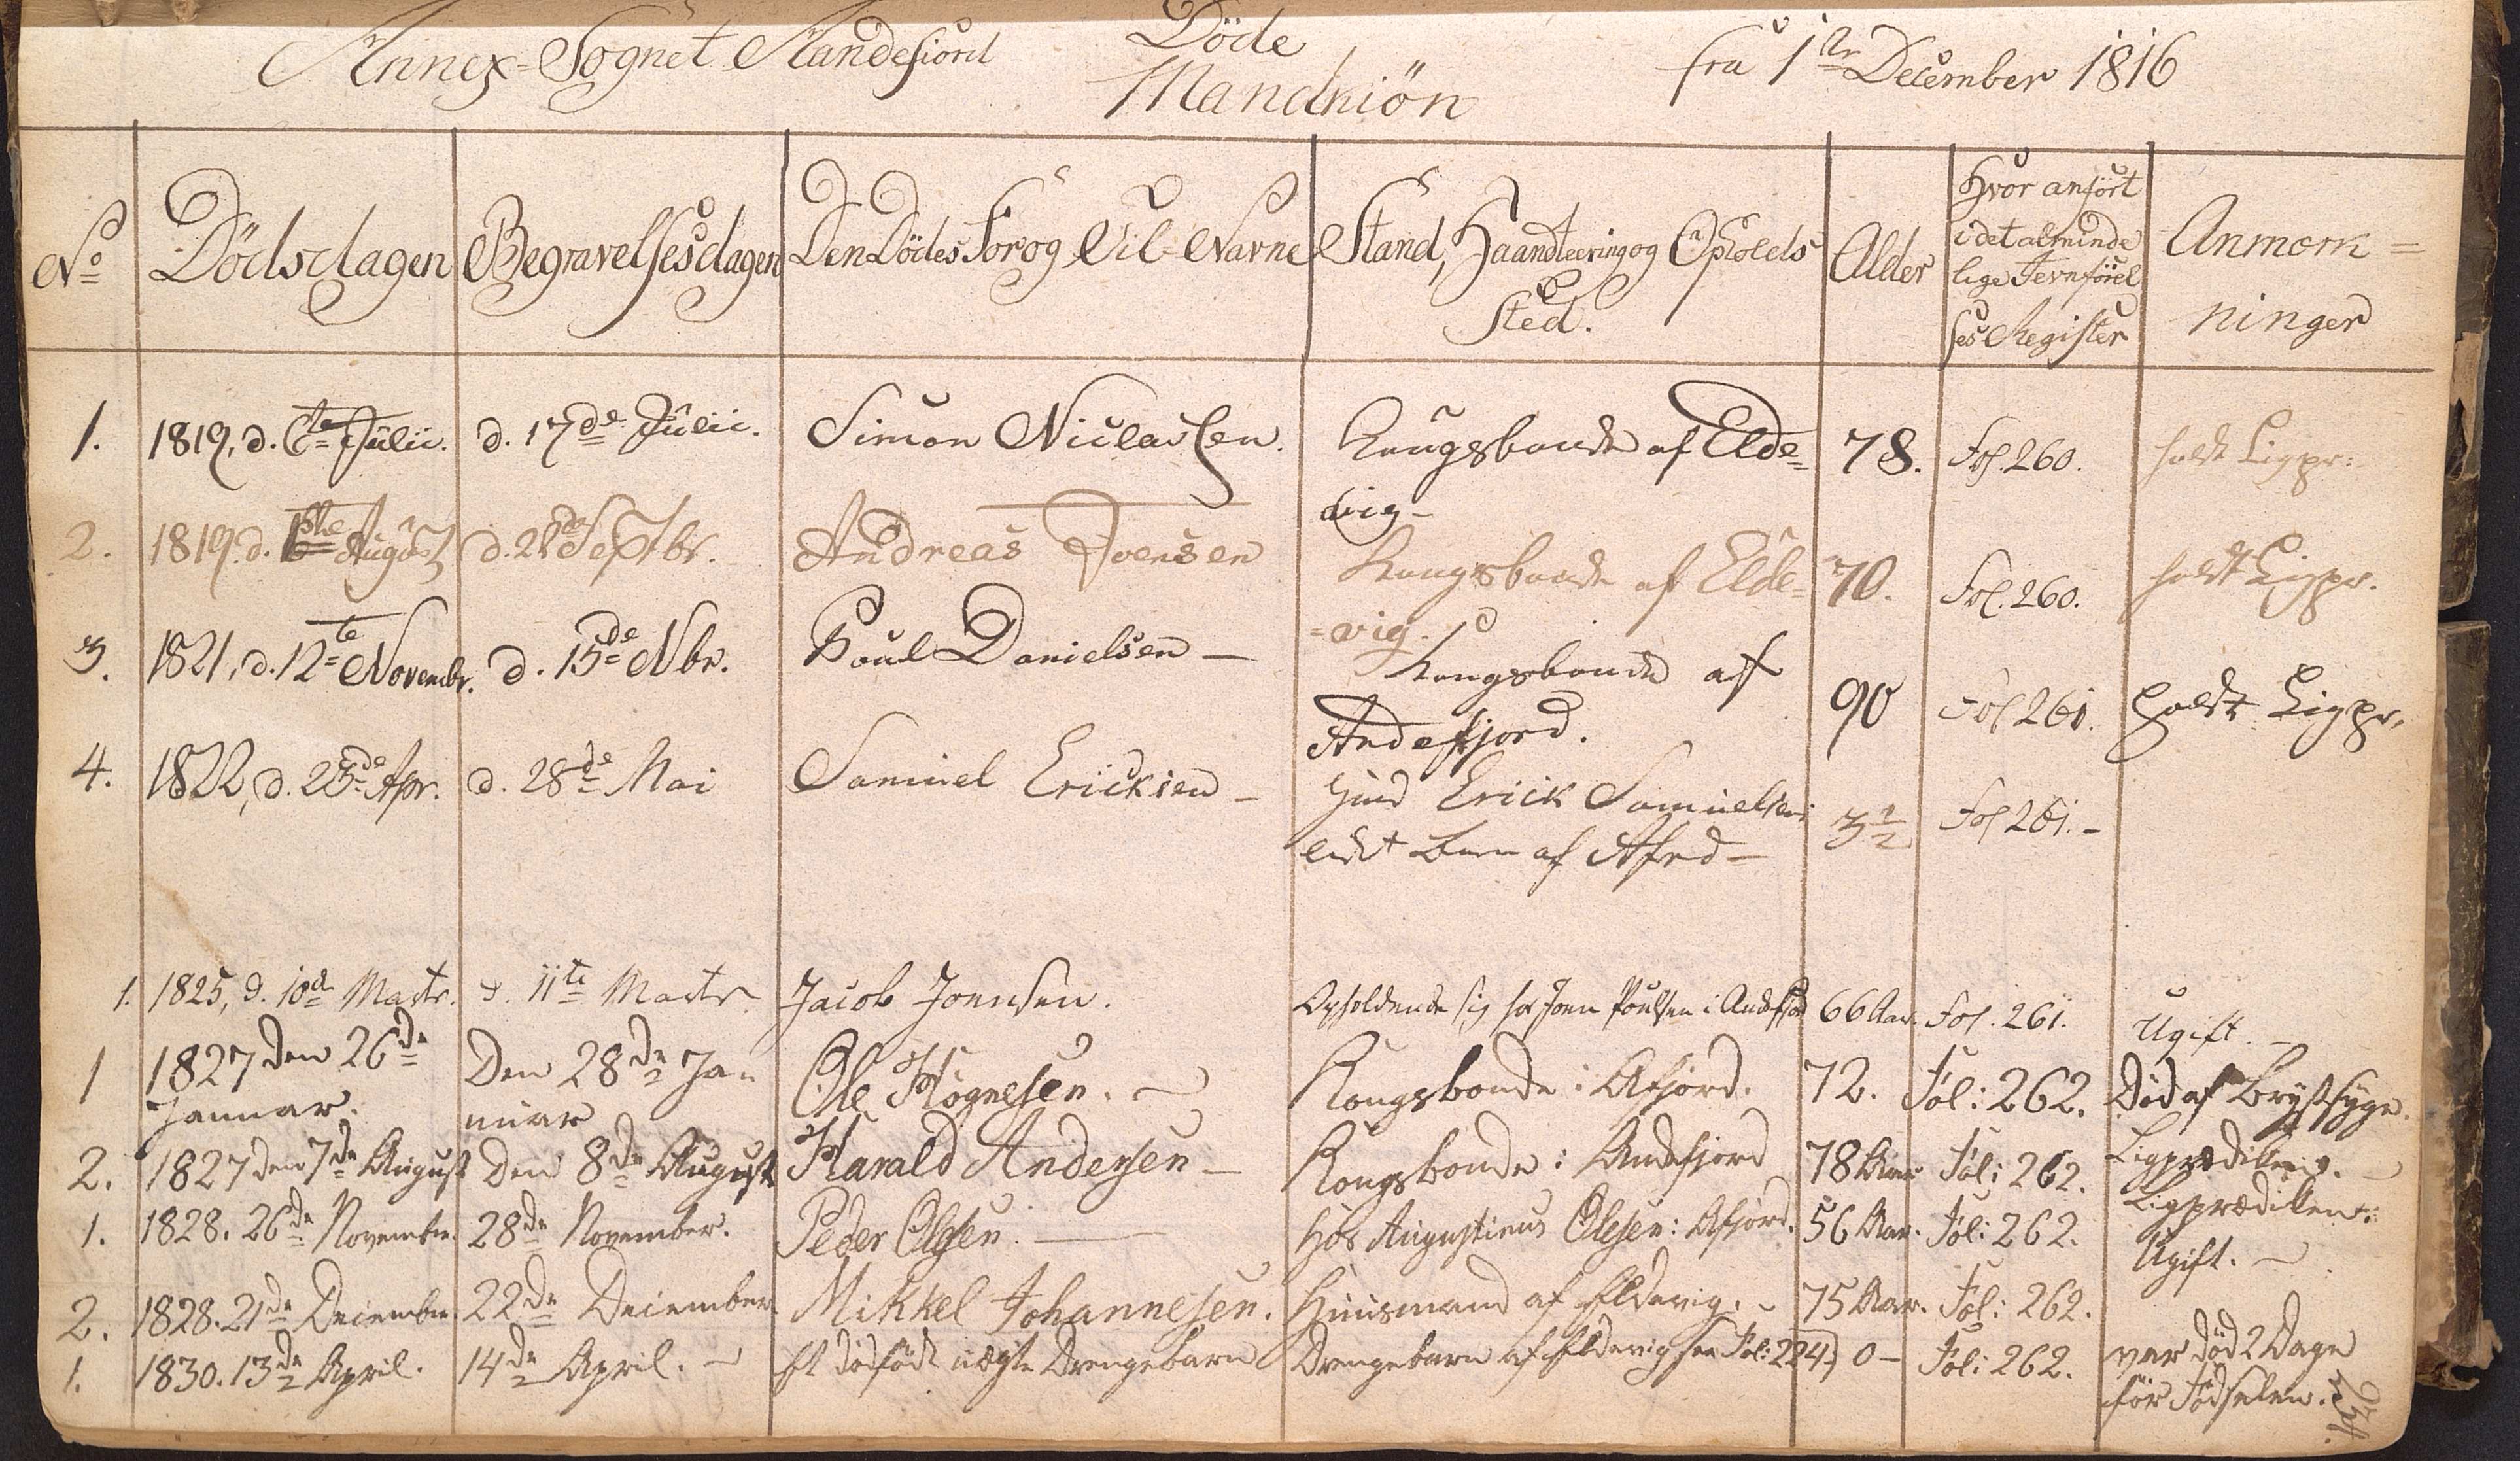 Annex-Sognet Andefiord
Döde
Mandkiön
fra 1te December 1816
No
Dödsdagen
Begravelsesdagen
Den Dödes For og Til-Navne
Stand, Haandteering og Opholds
Sted.
Alder
Hvor anfört
i det alminde
lige Jevnförel
ses Register
Anmærk=
ninger
1. 1819, d. 6te Julii. d. 17de Julii. Simon Niclassen. Kongsbonde af Elde= 78. Fol. 260. holdt Ligpr:
vig-
2. 1819. d. August d. 21de Septbr. Andreas Joensen Kongsbonde af Elde= 70. Fol. 260. holdt Ligpr.
=vig.
3. 1821, d. 12te Novembr. d. 15de Nbr. Poul Danielsen - Kongsbonde af 90 Fol 261. holdt Ligpr.
Andefjord.
4. 1822, d. 25de Apr. d. 28de Mai Samuel Ericksen - Erick Samuelsens 3 1/2 Fol 261.-
Barn af Afiord-
1. 1825, d. 10de Marts. d. 11te Marts Jacob Joensen. Opholdende sig hos Joen Poulsen i Andefjord 66 Aar. Fol. 261. Ugift. -
1 1827 den 26de Den 28de Ja- Ole Högnesen. Kongsbonde i Afjord. 72. Fol: 262. Död af Brystsyge.
Januar. nuar Ligprædiken.
2. 1827 den 7de August Den 8de August Harald Andersen - Kongsbonde i Andefjord 78 Aar Fol: 262. Ligprædiken.
1. 1828. 26de November. 28de November. Peder Olesen. Hos Augustinus Olesen i Afjord. 56 Aar. Fol: 262. Ugift.
2. 1828. 21de December. 22de December. Mikkel Johannesen. Huusmand af Eldevig. - 75 Aar. Fol: 262.
1. 1830. 13de April. 14de April. Et dödfödt uægte Drengebarn Drengebarn af Eldevig see Fol: 224) 0- Fol: 262. var död 2 Dage
för Födselen.